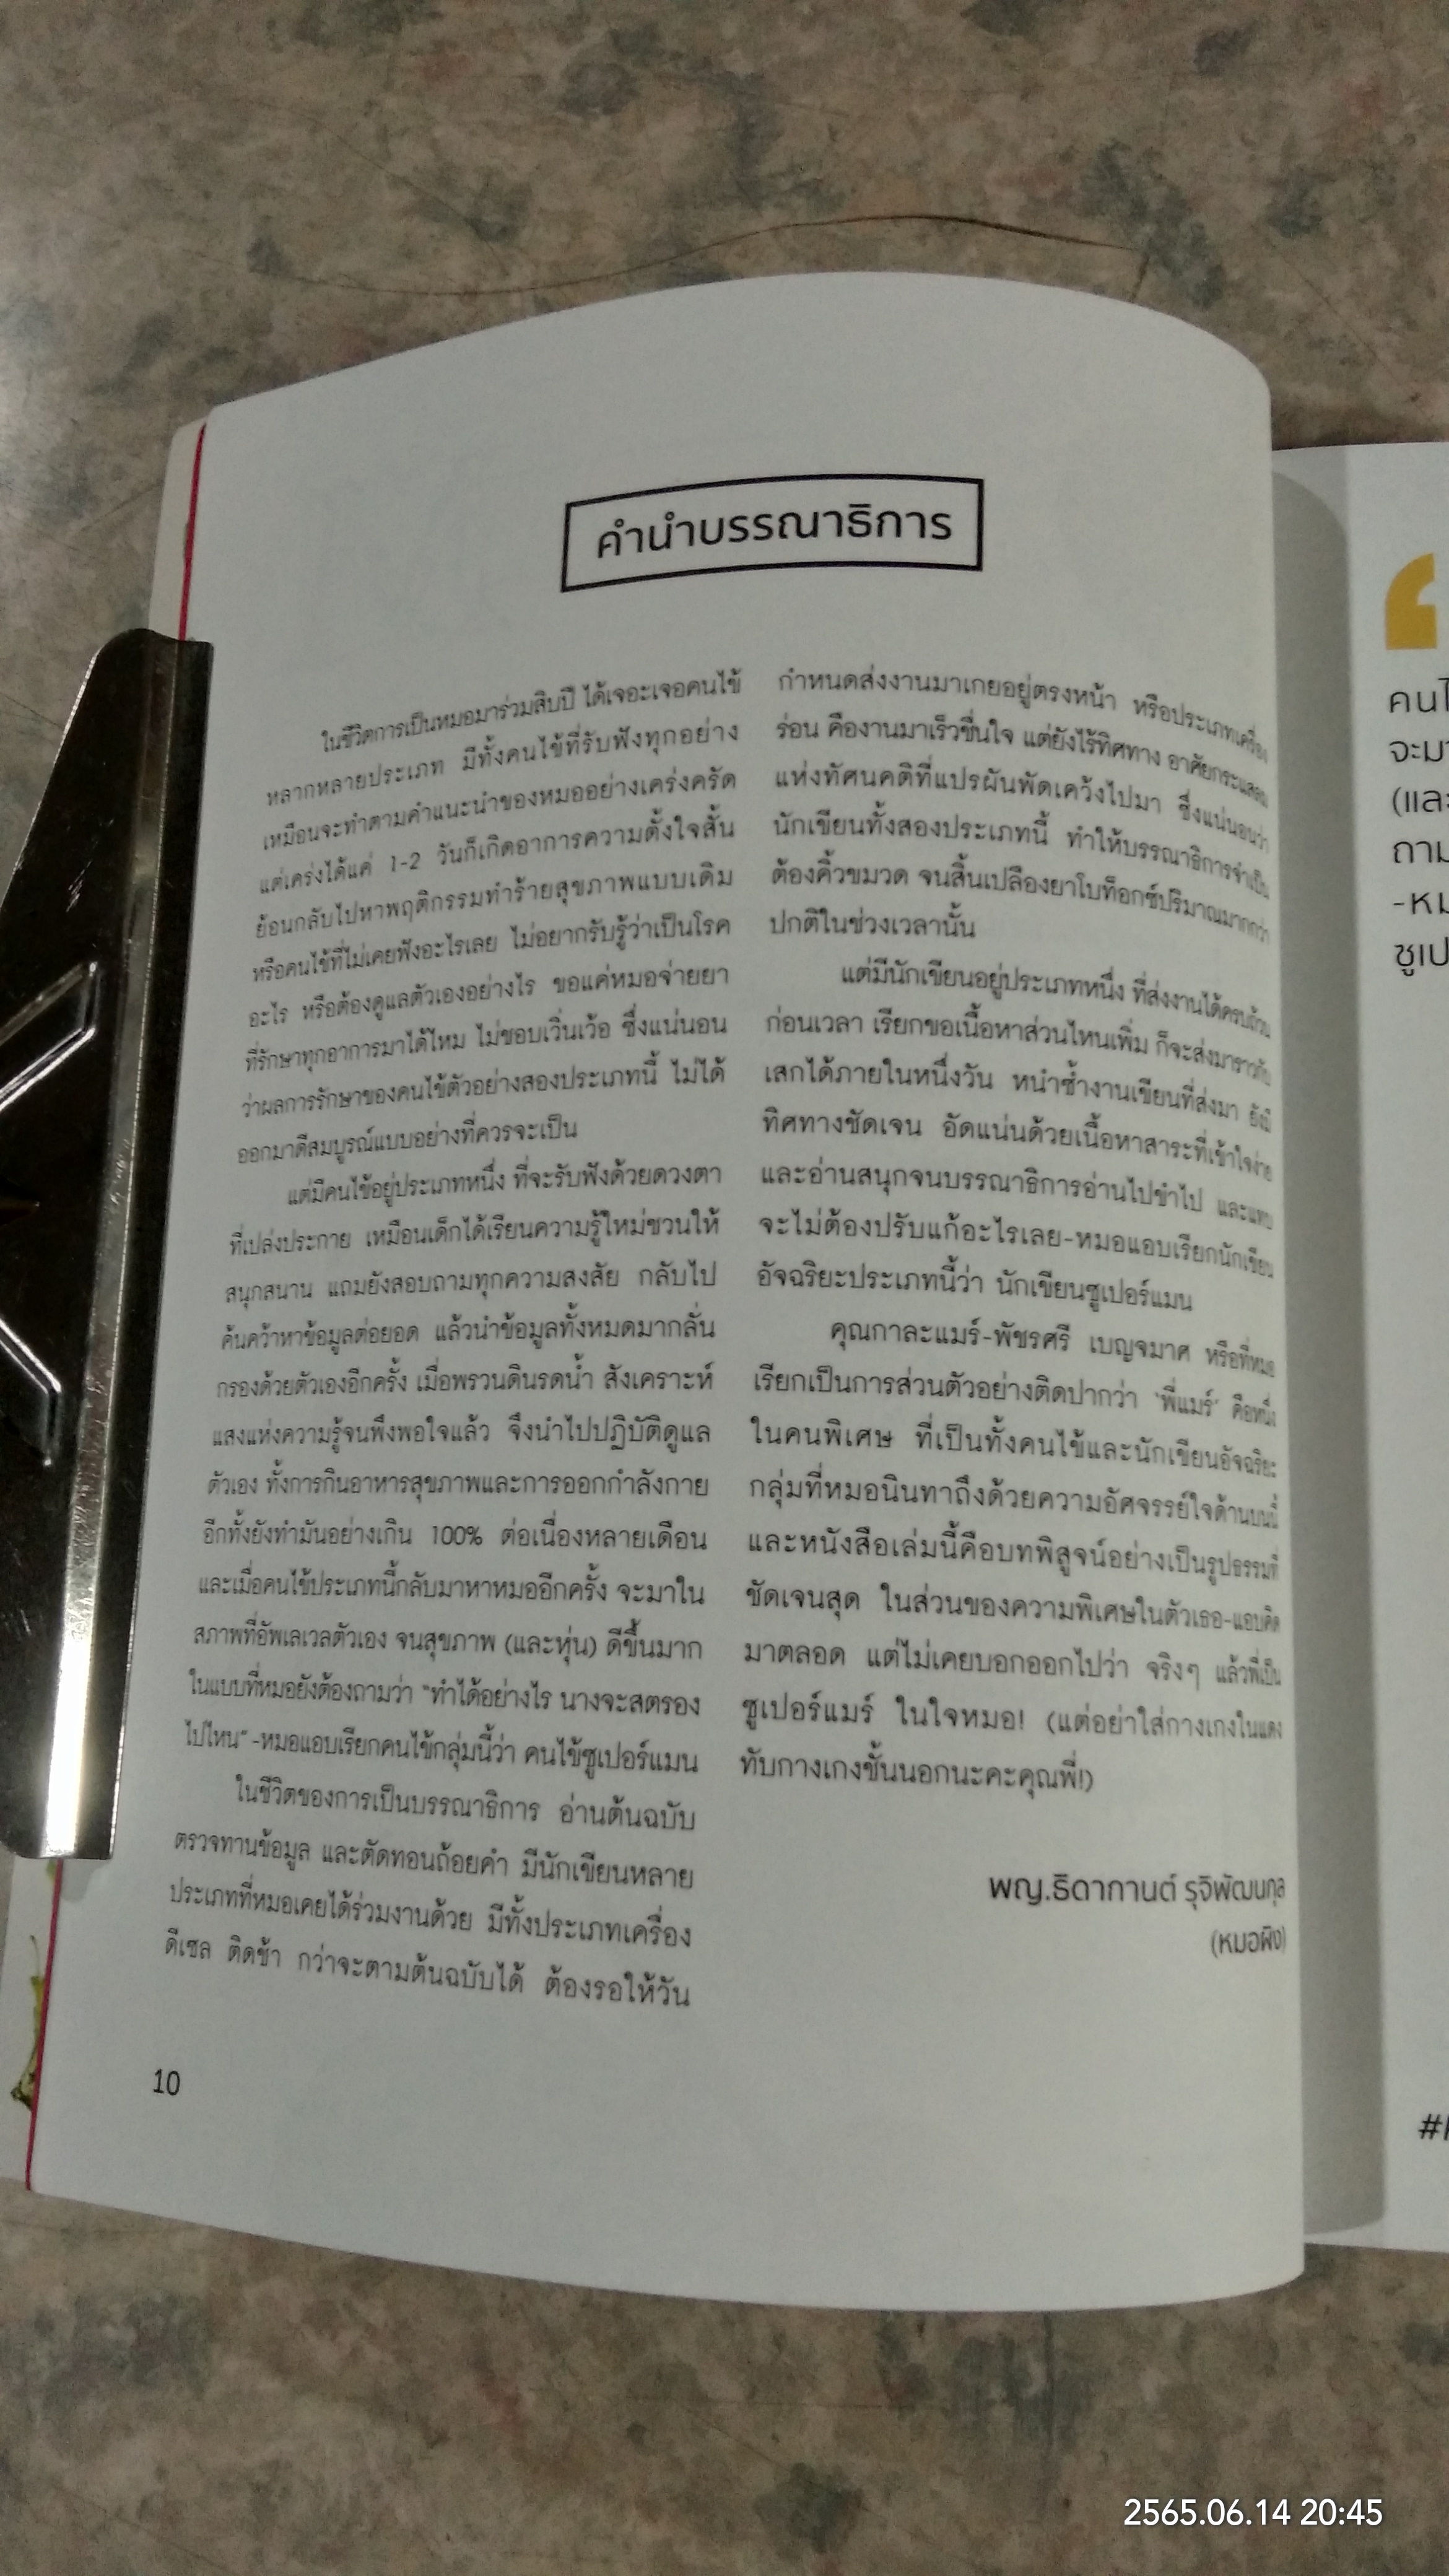 คำนำบรรณาธิการ
ในชีวิตการเป็นหมอมาร่วมสิบปี ได้เจอะเจอคนไข้
หลากหลายประเภท มีทั้งคนไข้ที่รับฟังทุกอย่าง
เหมือนจะทำตามคำแนะนำของหมออย่างเคร่งครัด
แต่เคร่งได้แค่ 1-2 วันก็เกิดอาการความตั้งใจสั้น
ย้อนกลับไปหาพฤติกรรมทำร้ายสุขภาพแบบเดิม
หรือคนไข้ที่ไม่เคยฟังอะไรเลย ไม่อยากรับรู้ว่าเป็นโรค
อะไร หรือต้องดูแลตัวเองอย่างไร ขอแค่หมอจ่ายยา
ที่รักษาทุกอาการมาได้ไหม ไม่ชอบเวิ่นเว้อ ซึ่งแน่นอน
ว่าผลการรักษาของคนไข้ตัวอย่างสองประเภทนี้ ไม่ได้
ออกมาดีสมบูรณ์แบบอย่างที่ควรจะเป็น
แต่มีคนไข้อยู่ประเภทหนึ่ง ที่จะรับฟังด้วยดวงตา
ที่เปล่งประกาย เหมือนเด็กได้เรียนความรู้ใหม่ชวนให้
สนุกสนาน แถมยังสอบถามทุกความสงสัย กลับไป
ค้นคว้าหาข้อมูลต่อยอด แล้วนำข้อมูลทั้งหมดมากลั่น
กรองด้วยตัวเองอีกครั้ง เมื่อพรวนดินรดน้ำ สังเคราะห์
แสงแห่งความรู้จนพึงพอใจแล้ว จึงนำไปปฏิบัติดูแล
ตัวเอง ทั้งการกินอาหารสุขภาพและการออกกำลังกาย
อีกทั้งยังทำมันอย่างเกิน 100% ต่อเนื่องหลายเดือน
และเมื่อคนไข้ประเภทนี้กลับมาหาหมออีกครั้ง จะมาใน
สภาพที่อัพเลเวลตัวเอง จนสุขภาพ (และหุ่น) ดีขึ้นมาก
ในแบบที่หมอยังต้องถามว่า "ทำได้อย่างไร นางจะสตรอง
ไปไหน" -หมอแอบเรียกคนไข้กลุ่มนี้ว่า คนไข้ซูเปอร์แมน
ในชีวิตของการเป็นบรรณาธิการ อ่านต้นฉบับ
ตรวจทานข้อมูล และตัดทอนถ้อยคำ มีนักเขียนหลาย
ประเภทที่หมอเคยได้ร่วมงานด้วย มีทั้งประเภทเครื่อง
ดีเซล ติดช้า กว่าจะตามต้นฉบับได้ ต้องรอให้วัน
กำหนดส่งงานมาเกยอยู่ตรงหน้า หรือประเภทเครื่อง
ร่อน คืองานมาเร็วชื่นใจ แต่ยังไร้ทิศทาง อาศัยกระแสลม
แห่งทัศนคติที่แปรผันพัดเคว้งไปมา ซึ่งแน่นอนว่า
นักเขียนทั้งสองประเภทนี้ ทำให้บรรณาธิการจำเป็น
ต้องคิ้วขมวด จนสิ้นเปลืองยาโบท็อกซ์ปริมาณมากกว่า
ปกติในช่วงเวลานั้น
แต่มีนักเขียนอยู่ประเภทหนึ่ง ที่ส่งงานได้ครบถ้วน
ก่อนเวลา เรียกขอเนื้อหาส่วนไหนเพิ่ม ก็จะส่งมาราวกับ
เสกได้ภายในหนึ่งวัน หนำซ้ำงานเขียนที่ส่งมา ยังมี
ทิศทางชัดเจน อัดแน่นด้วยเนื้อหาสาระที่เข้าใจง่าย
และอ่านสนุกจนบรรณาธิการอ่านไปขำไป และแทบ
จะไม่ต้องปรับแก้อะไรเลย-หมอแอบเรียกนักเขียน
อัจฉริยะประเภทนี้ว่า นักเขียนซูเปอร์แมน
คุณกาละแมร์-พัชรศรี เบญจมาศ หรือที่หมอ
เรียกเป็นการส่วนตัวอย่างติดปากว่า 'พี่แมร์' คือหนึ่ง
ในคนพิเศษ ที่เป็นทั้งคนไข้และนักเขียนอัจฉริยะ
กลุ่มที่หมอนินทาถึงด้วยความอัศจรรย์ใจด้านบนนี้
และหนังสือเล่มนี้คือบทพิสูจน์อย่างเป็นรูปธรรมที่
ชัดเจนสุด ในส่วนของความพิเศษในตัวเธอ-แอบคิด
มาตลอด แต่ไม่เคยบอกออกไปว่า จริงๆ แล้วพี่เป็น
ซูเปอร์แมร์ ในใจหมอ! (แต่อย่าใส่กางเกงในแดง
ทับกางเกงชั้นนอกนะคะคุณพี่!)
พญ.ธิดากานต์ รุจิพัฒนกุล
(หมอผิง)
10
จะมา
(และ
ถาม
ซูเป
2565.06.14 20:45